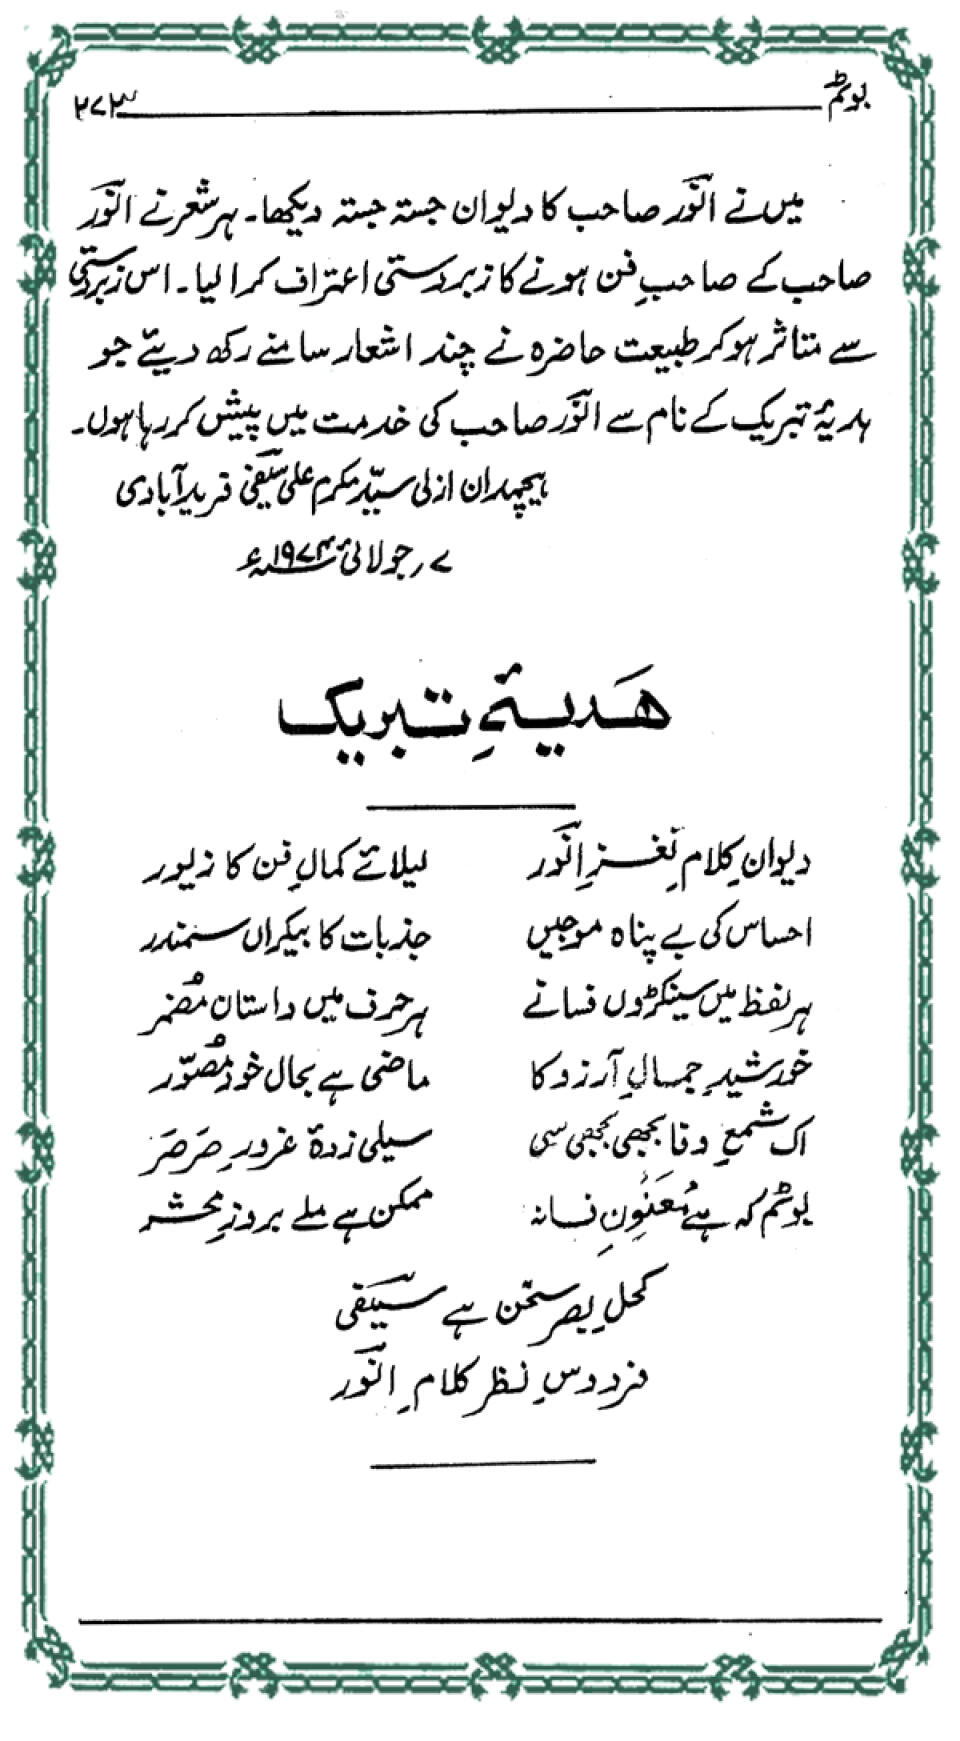 بوئم ۲۷۳
میں نے انورؔ صاحب کا دیوان جستہ جستہ دیکھا۔ ہر شعر نے انورؔ
صاحب کے صاحبِ فن ہونے کا زبردستی اعتراف کرا لیا۔ اس زبردستی
سے متاثر ہو کر طبیعت حاضرہ نے چند اشعار سامنے رکھ دیئے جو
ہدیۂ تبریک کے نام سے انورؔ صاحب کی خدمت میں پیش کر رہا ہوں۔
ہیچمدان ازلی سیّد مکرم علی سیفیؔ فریدآبادی
۷ جولائی ۱۹۷۴ء
ھَدیۂِ تبریک
دیوانِ کلامِ نغزِ انورؔ لیلائے کمالِ فن کا زیور
احساس کی بے پناہ موجیں جذبات کا بیکراں سمندر
ہر لفظ میں سینکڑوں فسانے ہر حرف میں داستان مُضمر
خورشیدِ جمالِ آرزو کا ماضی ہے بحال خود مُصوّر
اک شمعِ وفا بجھی بجھی سی سیلی زدۂ غرورِ صَرصَر
بوئم کہ ہے مُعَنوِنِ فسانہ ممکن ہے ملے بروزِ محشر
کحلِ بصرِ سخن ہے سیفیؔ
فردوسِ نظر کلامِ انورؔ